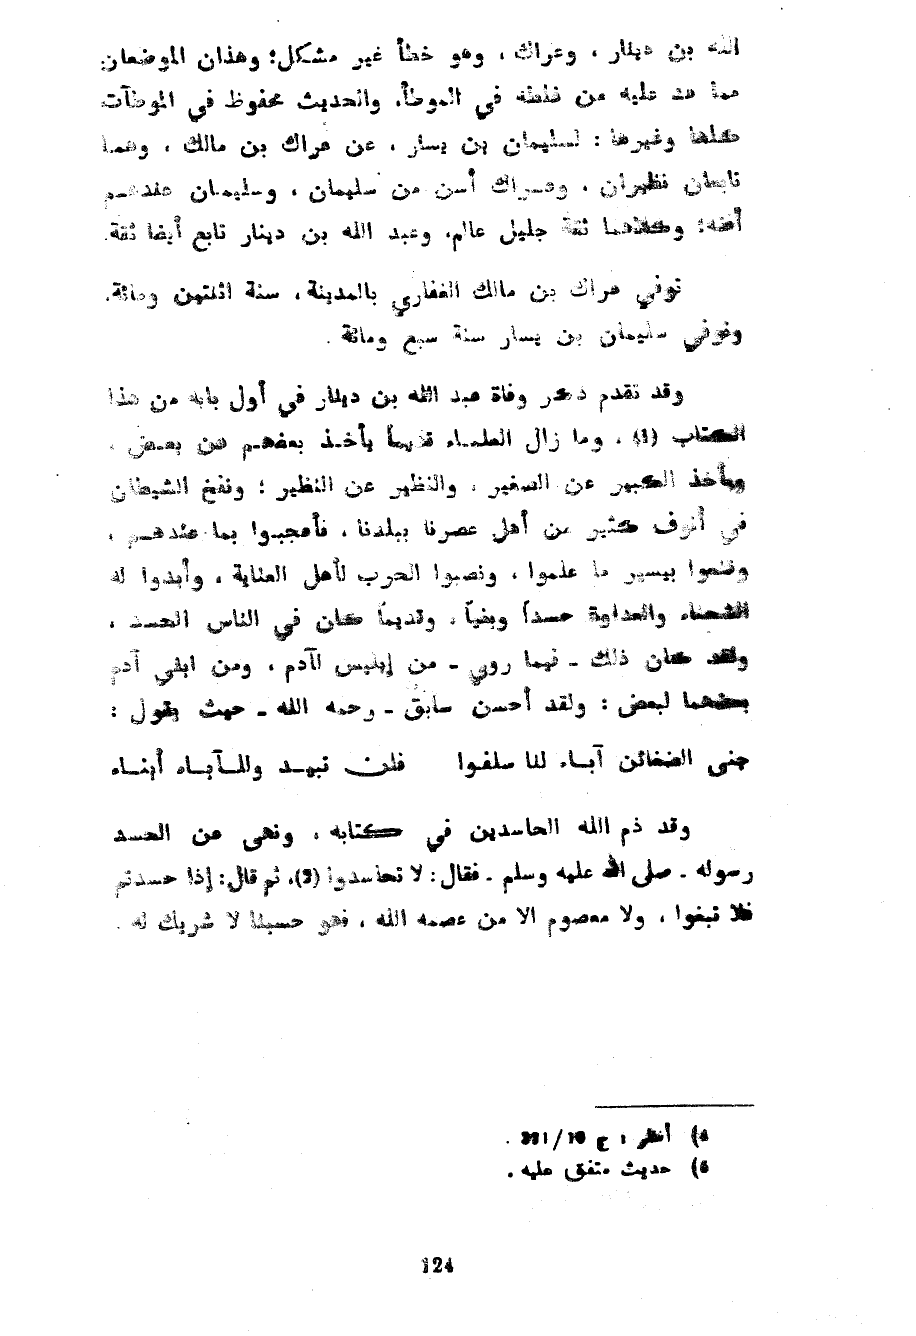 الله بن دينار ، وعراك ، وهو خطأ غير مشكل؛ وهذان الموضعان
مما عد عليه من غلطه في الموطأ، والحديث محفوظ في الموطآت
كلها وغيرها : لسليمان بن يسار ، عن عراك بن مالك ، وهما
تابعان نظيران ، وعراك أسن من سليمان ، وسليمان عندهم
أفقه؛ وكلاهما ثقة جليل عالم، وعبد الله بن دينار تابع أيضا ثقة.
توفي عراك بن مالك الغفاري بالمدينة ، سنة اثنتين ومائة،
وتوفي سليمان بن يسار سنة سبع ومائة .
وقد تقدم ذكر وفاة عبد الله بن دينار في أول بابه من هذا
الكتاب (4) ، وما زال العلماء قديما يأخذ بعضهم عن بعض ،
ويأخذ الكبير عن الصغير ، والنظير عن النظير ؛ ونفخ الشيطان
في أنوف كثير من أهل عصرنا ببلدنا ، فأعجبوا بما عندهم ،
وقنعوا بيسير ما علموا ، ونصبوا الحرب لأهل العناية ، وأبدوا له
الشحناء والعداوة حسدا وبغيا ، وقديما كان في الناس الحسد ،
ولقد كان ذلك ـ فيما روي ـ من إبليس لآدم ، ومن ابني آدم
بعضهما لبعض : ولقد أحسن سابق ـ رحمه الله ـ حيث يقول :
جنى الضغائن آباء لنا سلفوا فلن تبيد وللآباء أبناء
وقد ذم الله الحاسدين في كتابه ، ونهى عن الحسد
رسوله ـ صلى الله عليه وسلم ـ فقال : لا تحاسدوا (5)، ثم قال: إذا حسدتم
فلا تبغوا ، ولا معصوم الا من عصمه الله ، فهو حسبنا لا شريك له .
4) أنظر : ج 16/331 .
5) حديث متفق عليه .
124